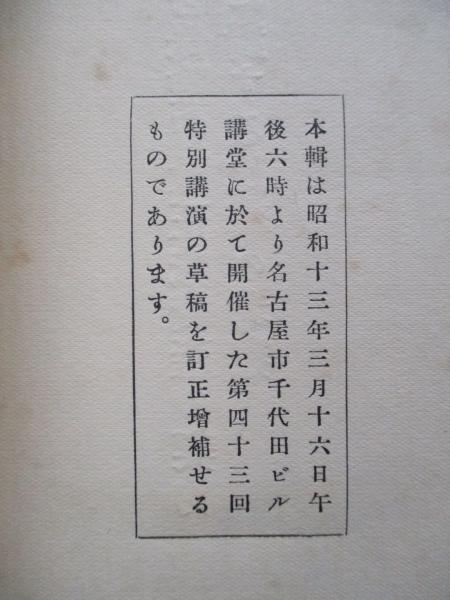 本輯は昭和十三年三月十六日午
後六時より名古屋市千代田ビル
講堂に於て開催した第四十三回
特別講演の草稿を訂正增補せる
ものであります。